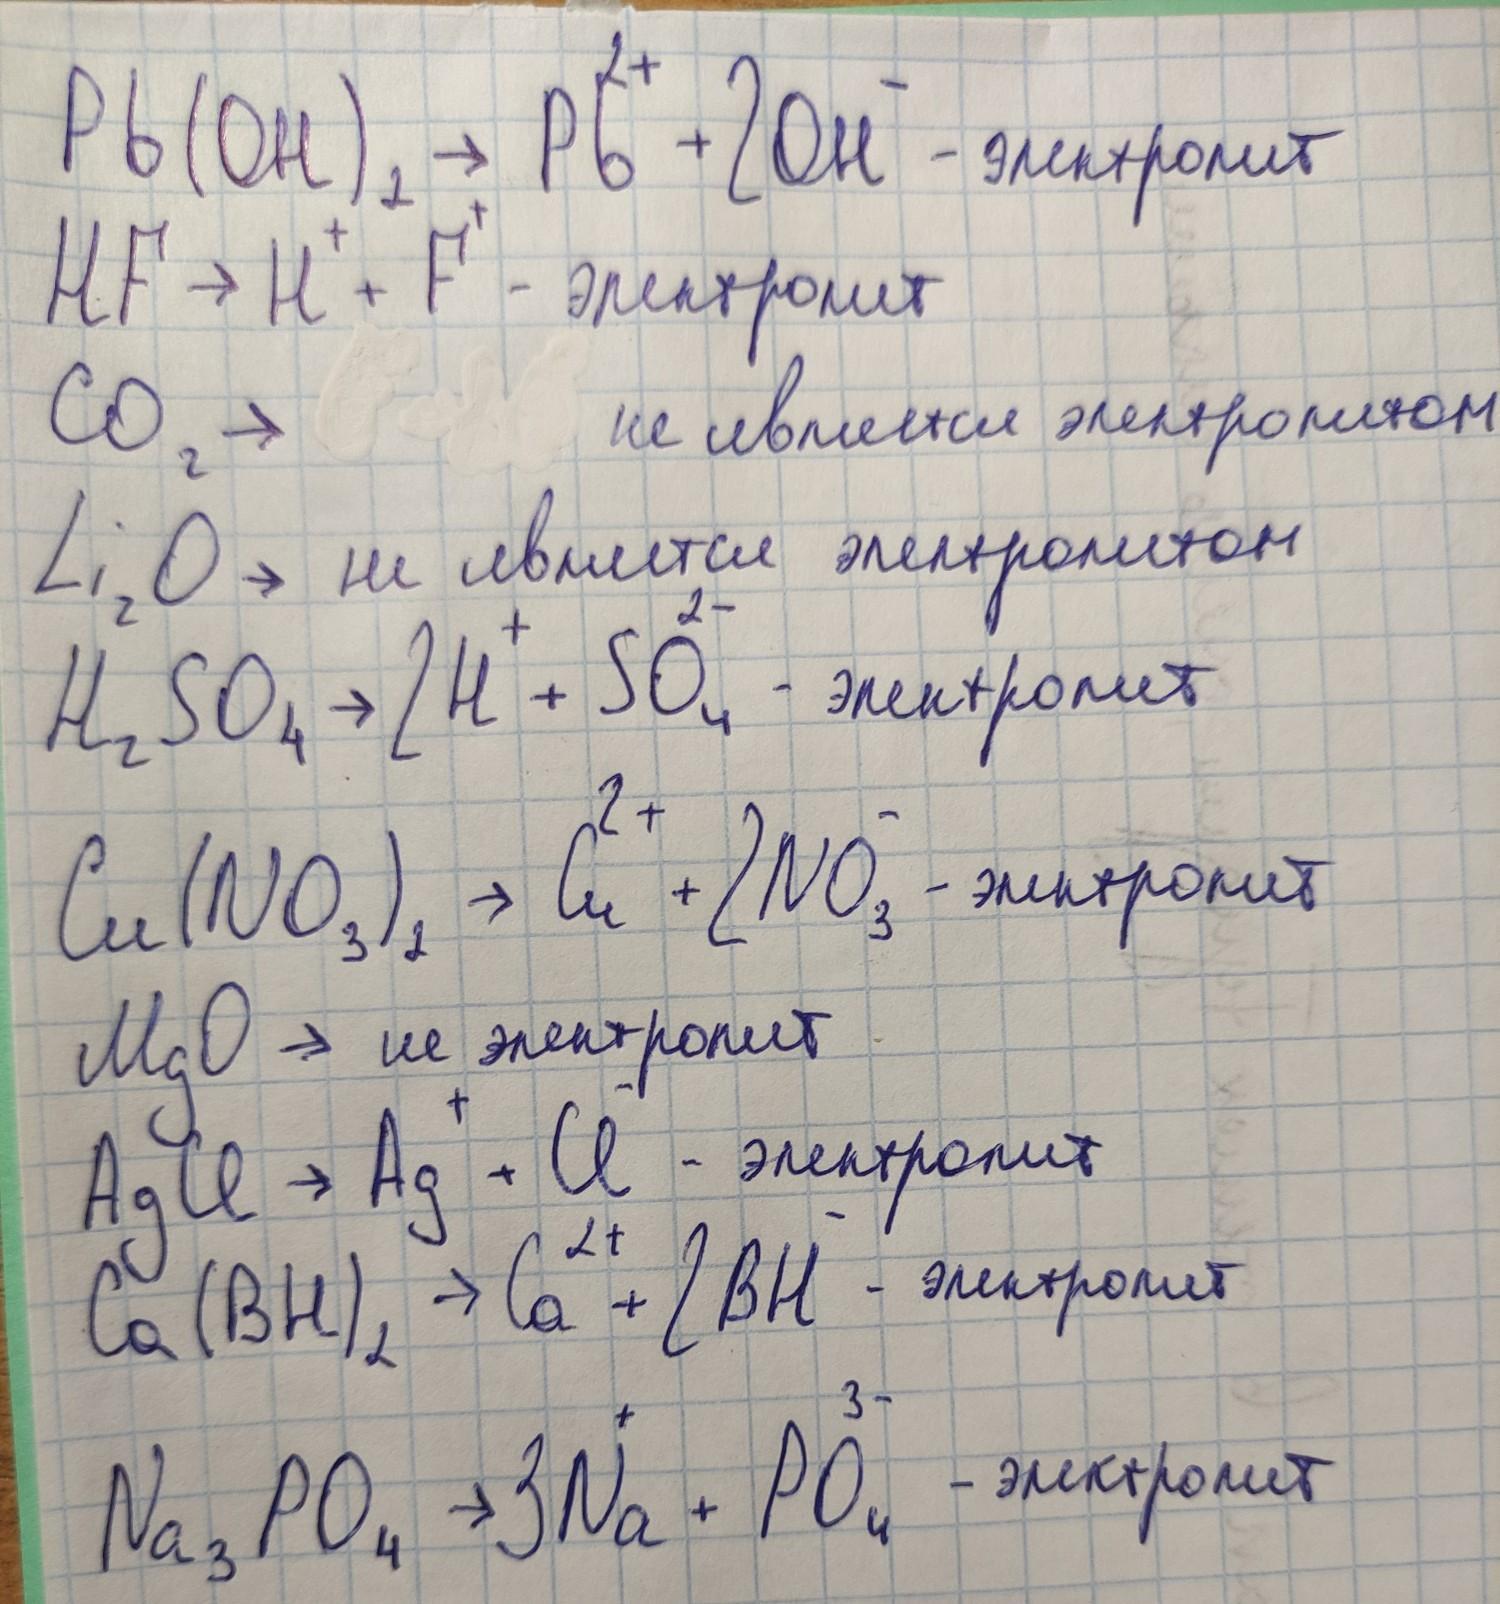 Pb(OH)₂ → Pb²⁺ + 2OH⁻ - электролит
HF → H⁺ + F⁺ - электролит
CO₂ → не является электролитом
Li₂O → не является электролитом
H₂SO₄ → 2H⁺ + SO₄²⁻ - электролит
Cu(NO₃)₂ → Cu²⁺ + 2NO₃⁻ - электролит
MgO → не электролит
AgCl → Ag⁺ + Cl⁻ - электролит
Ca(BH)₂ → Ca²⁺ + 2BH⁻ - электролит
Na₃PO₄ → 3Na⁺ + PO₄³⁻ - электролит